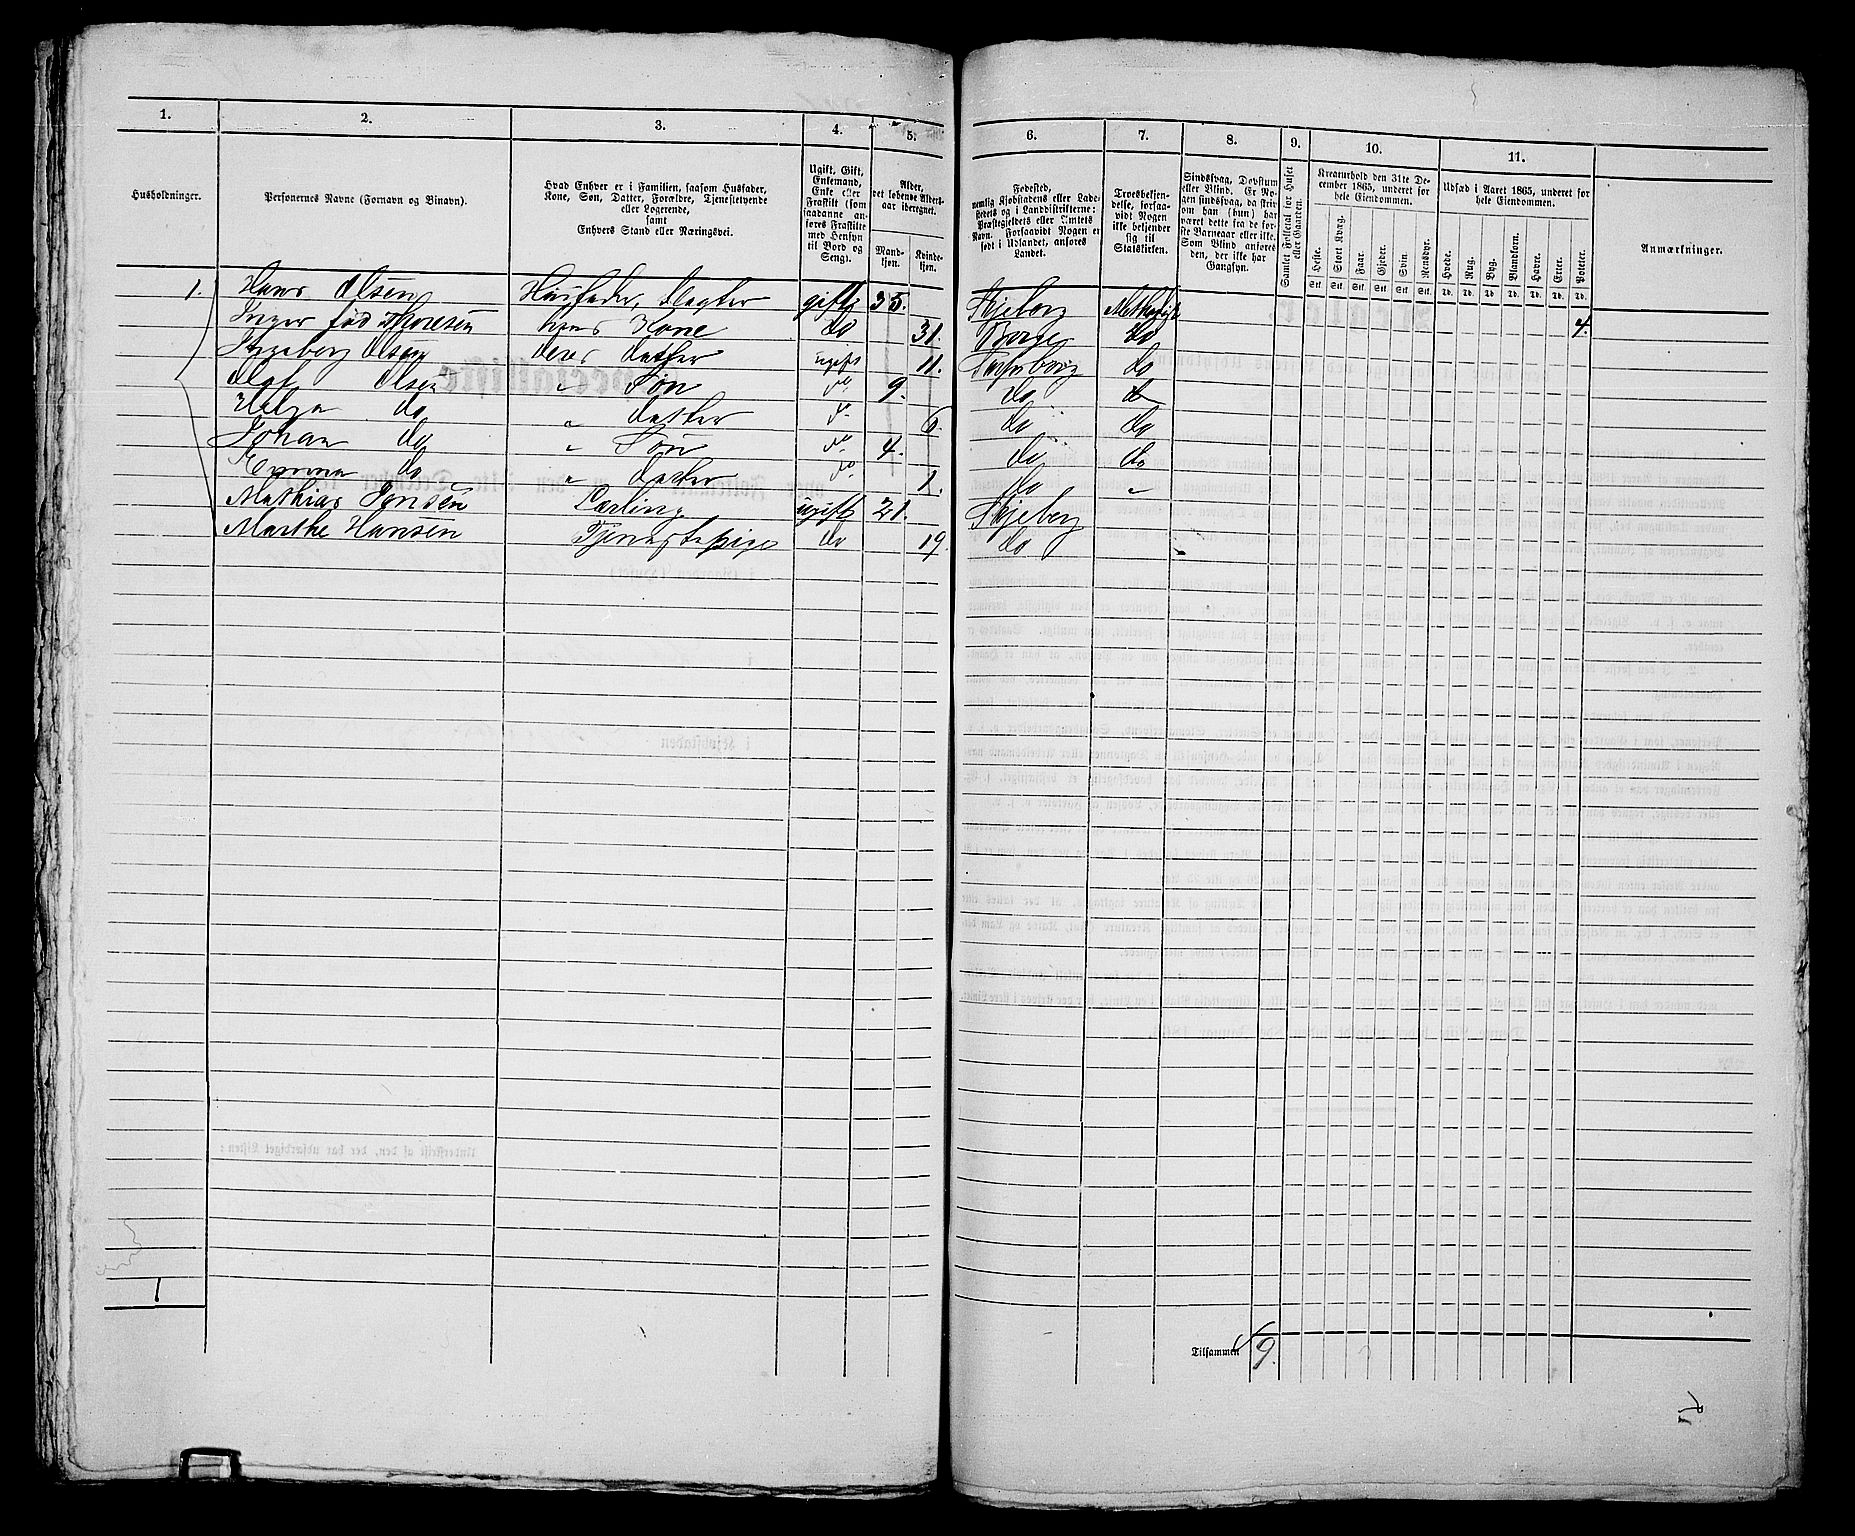 1. 2. 3. 4. 5. 6. 7. 8. 9. 10. 11.
Husholdninger.
Personernes Navne (Fornavn og Binavn).
Hvad Enhver er i Familien, saasom Husfader,
Kone, Søn, Datter, Forældre, Tjenestetyende
eller Logerende,
samt
Enhvers Stand eller Næringsvei.
Ugift, Gift,
Enkemand,
Enke eller
Fraskilt (som
saadanne an-
føres Fraskilte
med Hensyn
til Bord og
Seng).
Alder,
det løbende Alders-
aar iberegnet.
Mand-
kjøn.
Kvinde-
kjøn.
Fødested,
nemlig Kjøbstadens eller Lade-
stedets og i Landdistrikterne:
Præstegjeldets eller Amtets
Navn. Forsaavidt Nogen er
født i Udlandet, anføres
Landet.
Troesbekjen-
delse, forsaa-
vidt Nogen
ikke bekjender
sig til
Statskirken.
Sindssvag, Døvstum
eller Blind. Er No-
gen sindssvag, da skriv
om han (hun) har
været dette fra de før-
ste Barneaar eller ikke.
Som Blind anføres
den, der ikke har
Gangsyn.
Samlet Folketal for Huset
eller Gaarden.
Kreaturhold den 31te De-
cember 1865, underet for
hele Eiendommen.
Heste. Stort Kvæg. Faar. Gjeder. Svin. Rensdyr.
Stk. Stk. Stk. Stk. Stk. Stk.
Udsæd i Aaret 1865, underet for
hele Eiendommen.
Hvede. Rug. Byg. Blandkorn. Havre. Erter. Poteter.
Td. Td. Td. Td. Td. Td. Td.
Anmærkninger.
1. Hans Olsen Husfader, Slagter gift 35. Skjeberg Methodist
Inger fød Thoresen hans Kone do 31. Borge do 4.
Ingeborg Olsen deres Datter ugift 11. Sarpsborg do
Olaf Olsen " Søn do 9. do do
Helga do " datter do 6. do do
Johan do " Søn do 4. do do
Emma do " datter do 1. do "
Mathias Jensen Lærling ugift 21. Skjeberg
Marthe Hansen Tjenestepige do 19. do
1
Tilsammen 9.